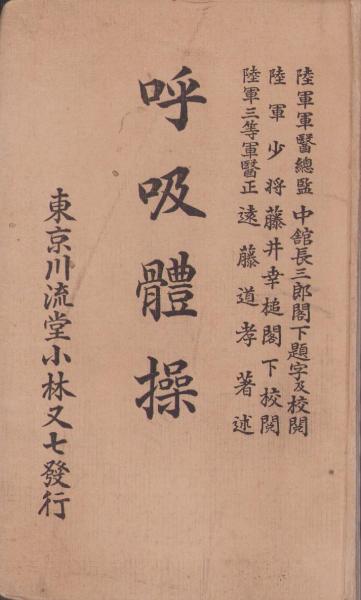 陸軍軍醫總監中舘長三郎閣下題字及校閱
陸軍少將藤井幸槌閣下校閱
陸軍三等軍醫正遠藤道孝著述
呼吸體操
東京川流堂小林又七發行